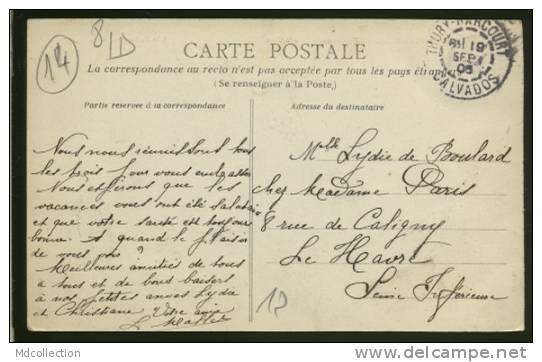 14
8/D
CARTE POSTALE
La correspondance au recto n'est pas acceptée par tous les pays étrangers
(Se renseigner à la Poste)
THURY-HARCOURT
19
SEPT
CALVADOS
Partie réservée à la correspondance
Nous nous réunissons tous
les trois pour vous embrasser
Nous espérons que les
vacances vous ont été
et que votre santé est toujours
bonne. A quand le plaisir
de vous
Meilleures amitiés de tous
a tous et de bons baisers
à nos petites amies Lydie
et Christiane Votre amie
Adresse du destinataire
Mlle Lydie de Boulard
chez Madame Paris
8 rue de Caligny
Le Havre
Seine Inférieure
Mdcollection
http://mdcollection.delcampe.net